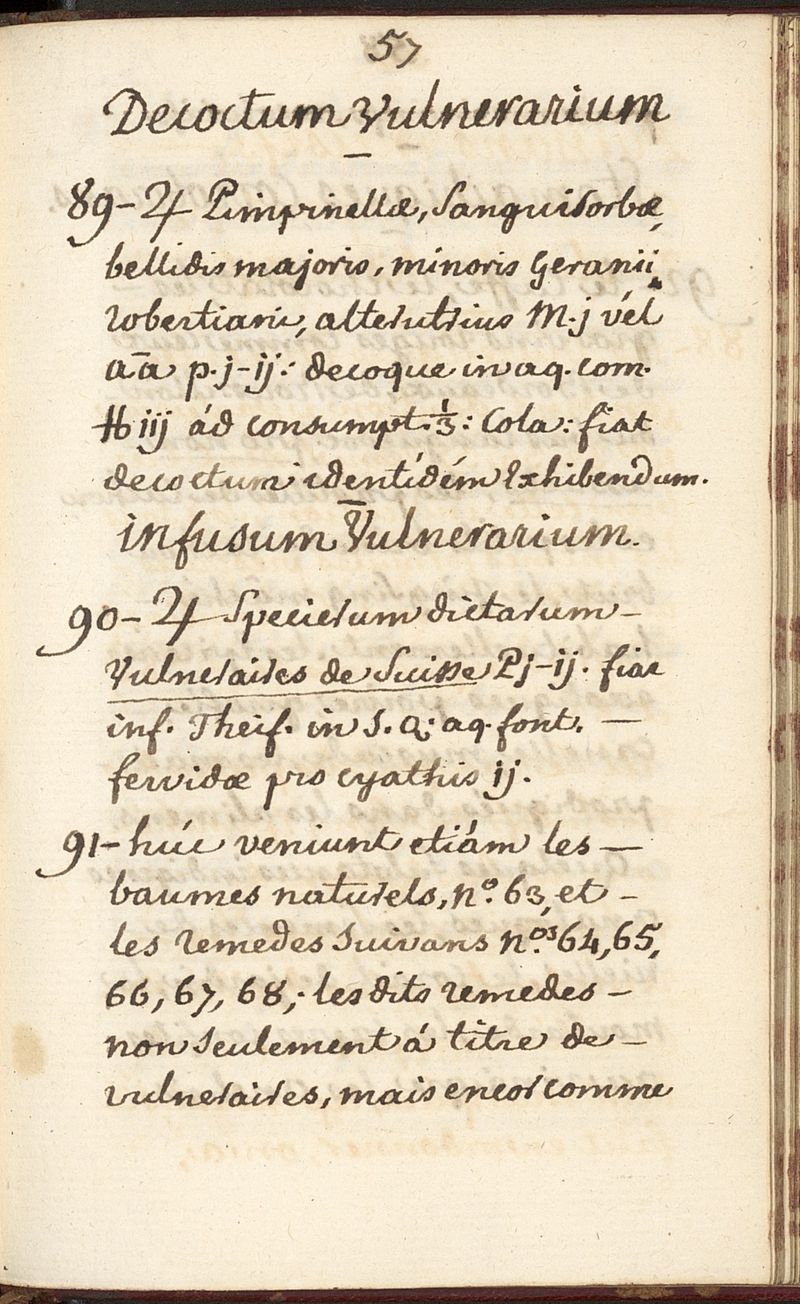 57
Decoctum Vulnerarium
89- ♃ Pimpinellæ, Sanguisorbæ,
bellidis majoris, minoris Geranii
robertiani, alterutrius M.j vél
aā p.j-ij: decoque in aq. com.
℔ iij ád consumpt. 1/3: Cola: fiat
decoctum identídém exhibendum.
infusum Vulnerarium.
90- ♃ Specierum dictarum -
Vulneraires de Suisse Pj-ij. fiat
inf. Theif. in S. Q: aq. font. —
fervidæ pro cyathis ij.
91- húc veniunt etiám les —
baumes naturels, nº. 63, et -
les remedes Suivans n.os 64, 65,
66, 67, 68,; les dits remedes -
non Seulement á titre de -
vulneraires, mais encor comme